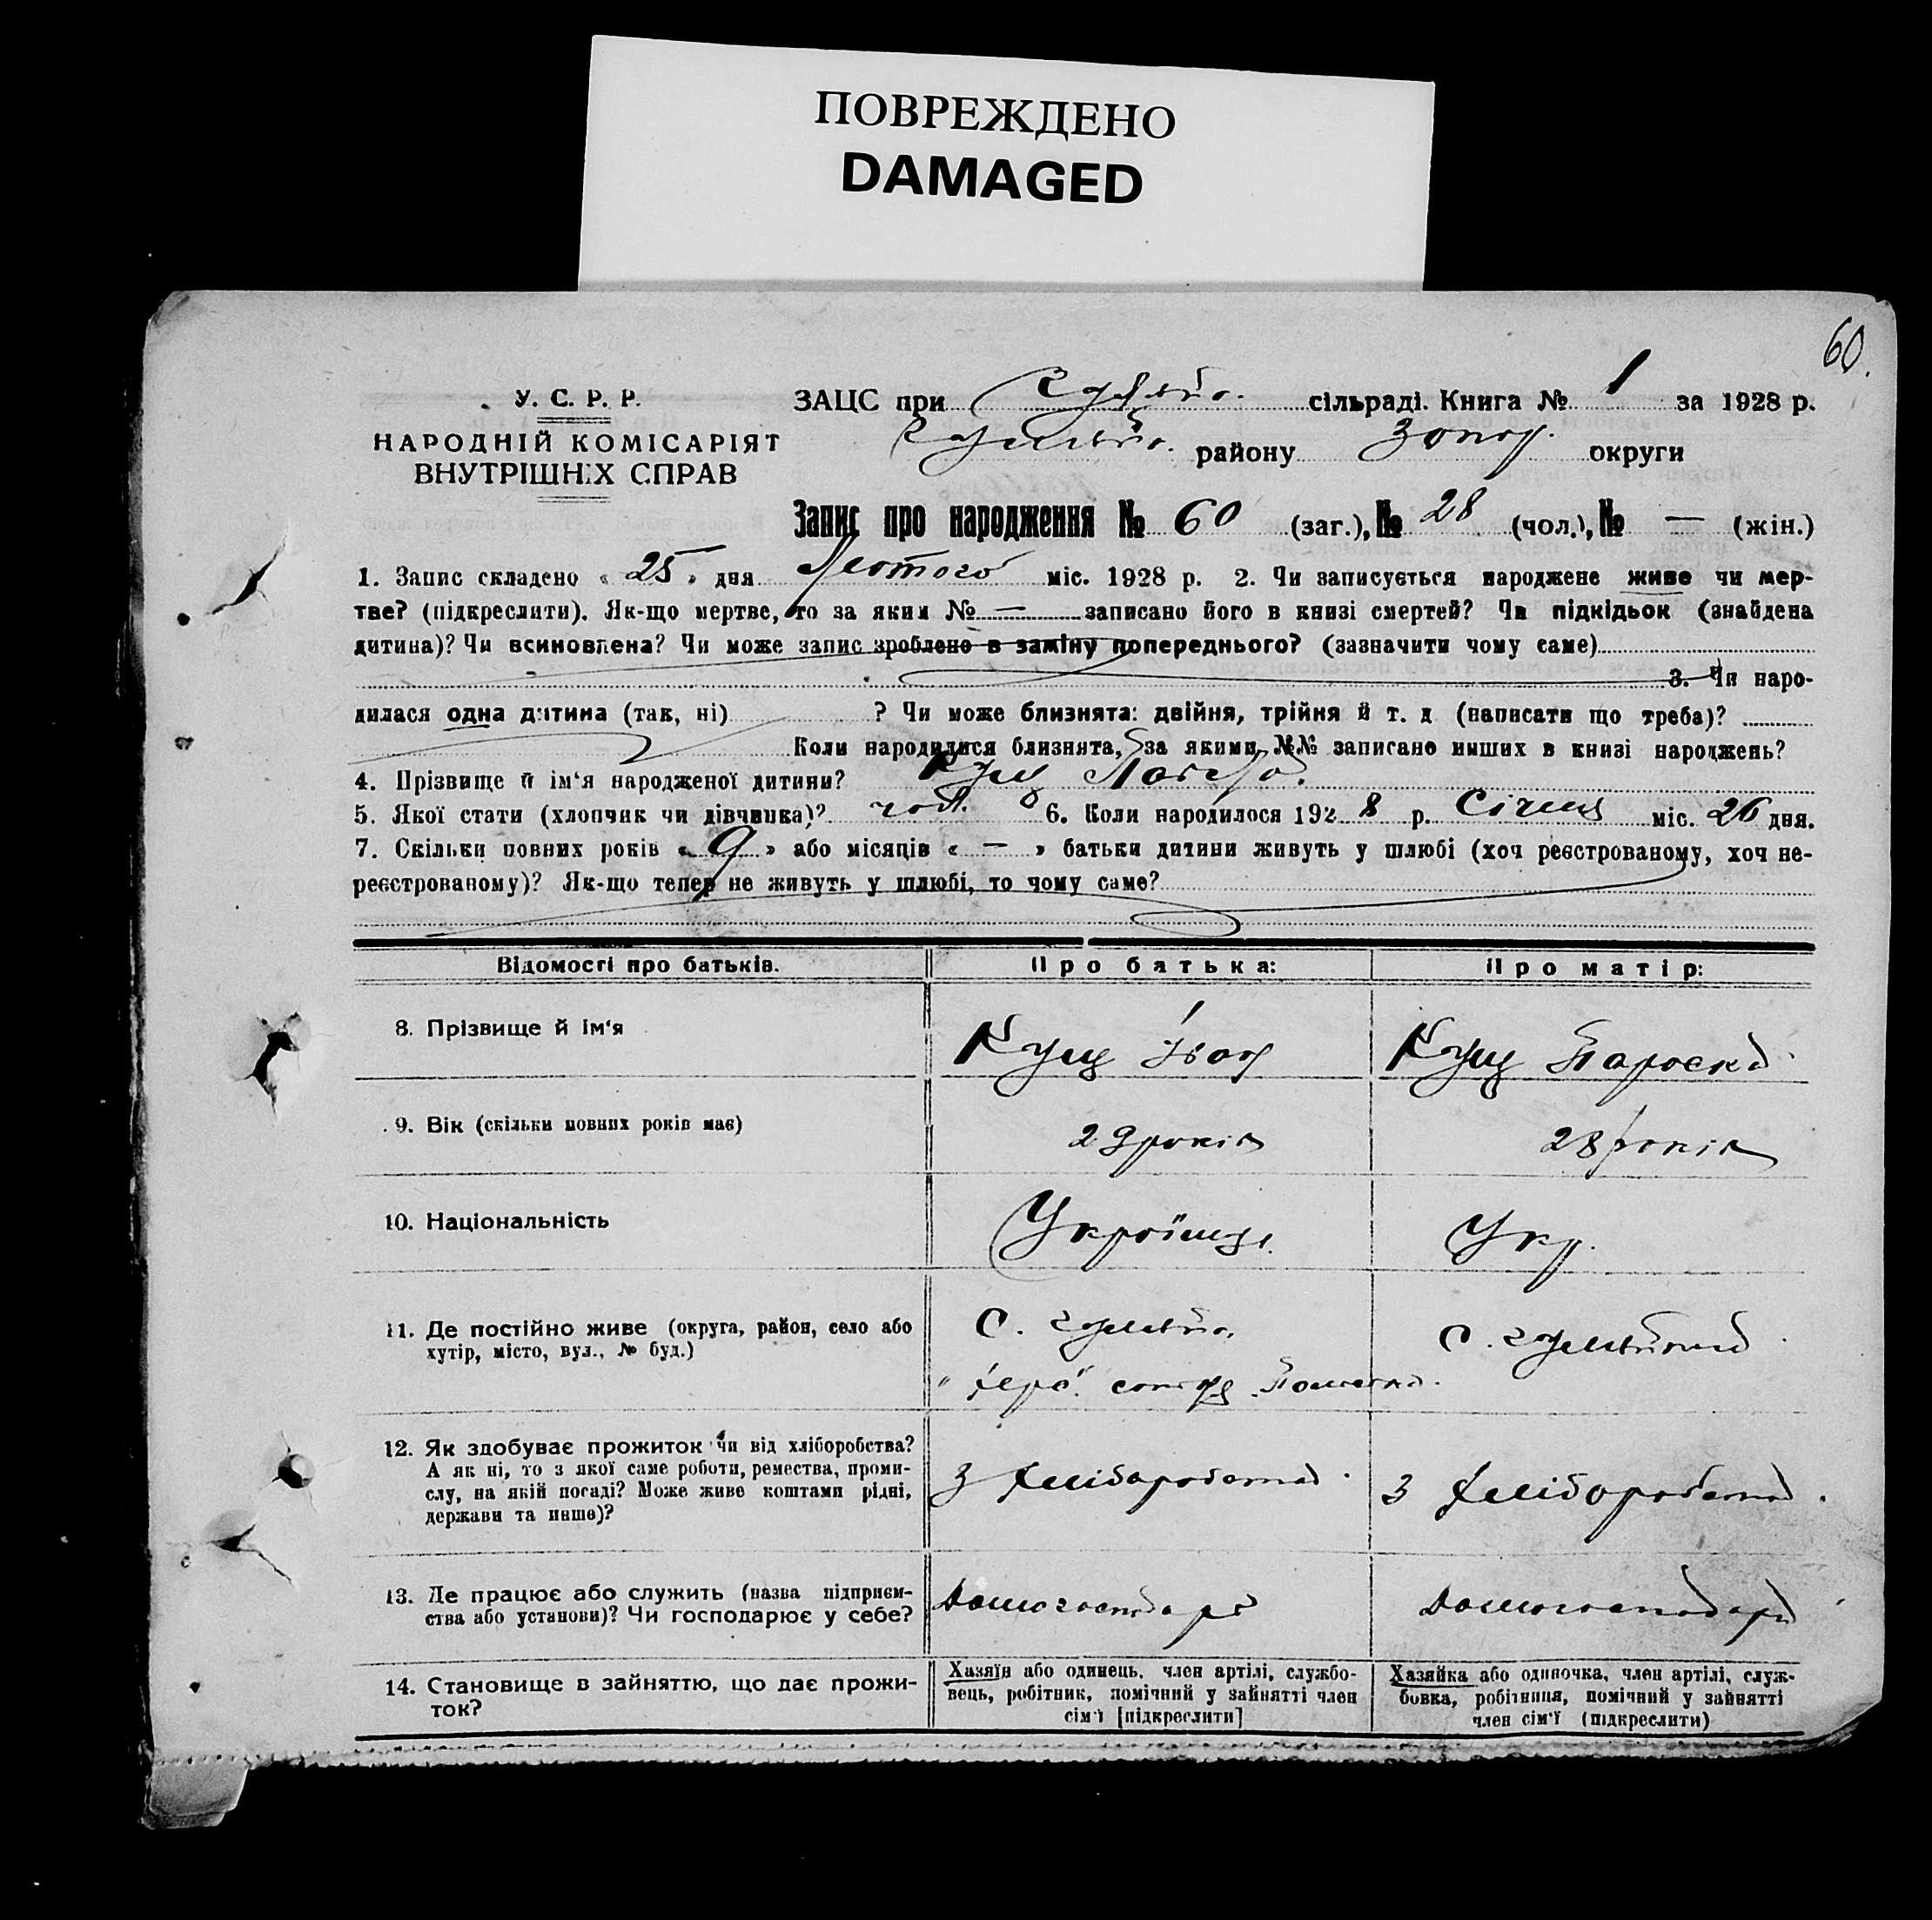 ПОВРЕЖДЕНО
DAMAGED
60.
У. С. Р. Р.
НАРОДНІЙ КОМІСАРІЯТ
ВНУТРІШНІХ СПРАВ
ЗАЦС при сільраді. Книга № 1 за 1928 р.
району Запор. округи
Запис про народження № 60 (заг.), № 28 (чол.), № — (жін.)
1. Запис складено « 25 » дня Лютого міс. 1928 р. 2. Чи записується народжене живе чи мер-
тве? (підкреслити). Як-що мертве, то за яким № — записано його в книзі смертей? Чи підкідьок (знайдена
дитина)? Чи всиновлена? Чи може запис зроблено в заміну попереднього? (зазначити чому саме)
3. Чи наро-
дилася одна дитина (так, ні) ? Чи може близнята: двійня, трійня й т. д (написати що треба)?
Коли народилися близнята, за якими №№ записано инших в книзі народжень?
4. Прізвище й ім'я народженої дитини? Кущ
5. Якої стати (хлопчик чи дівчинка)? чол. 6. Коли народилося 1928 р. Січня міс. 26 дня.
7. Скільки повних років « 9 » або місяців « — » батьки дитини живуть у шлюбі (хоч реєстрованому, хоч не-
реєстрованому)? Як-що тепер не живуть у шлюбі, то чому саме?
Відомості про батьків.
Про батька:
Про матір:
8. Прізвище й ім'я
Кущ Іван
Кущ Параска
9. Вік (скільки повних років має)
29 років
28 років
10. Національність
Українець
Укр.
11. Де постійно живе (округа, район, село або
хутір, місто, вул., № буд.)
с.
с.
12. Як здобуває прожиток чи від хліборобства?
А як ні, то з якої саме роботи, ремества, проми-
слу, на якій посаді? Може живе коштами рідні,
держави та инше)?
З хліборобства
З хліборобства.
13. Де працює або служить (назва підприєм-
ства або установи)? Чи господарює у себе?
Домогосподарь
Домогосподарка
14. Становище в зайняттю, що дає прожи-
ток?
Хазяїн або одинець, член артілі, службо-
вець, робітник, помічний у зайнятті член
сім'ї [підкреслити]
Хазяйка або одиночка, член артілі, служ-
бовка, робітниця, помічний у зайнятті
член сім'ї (підкреслити)